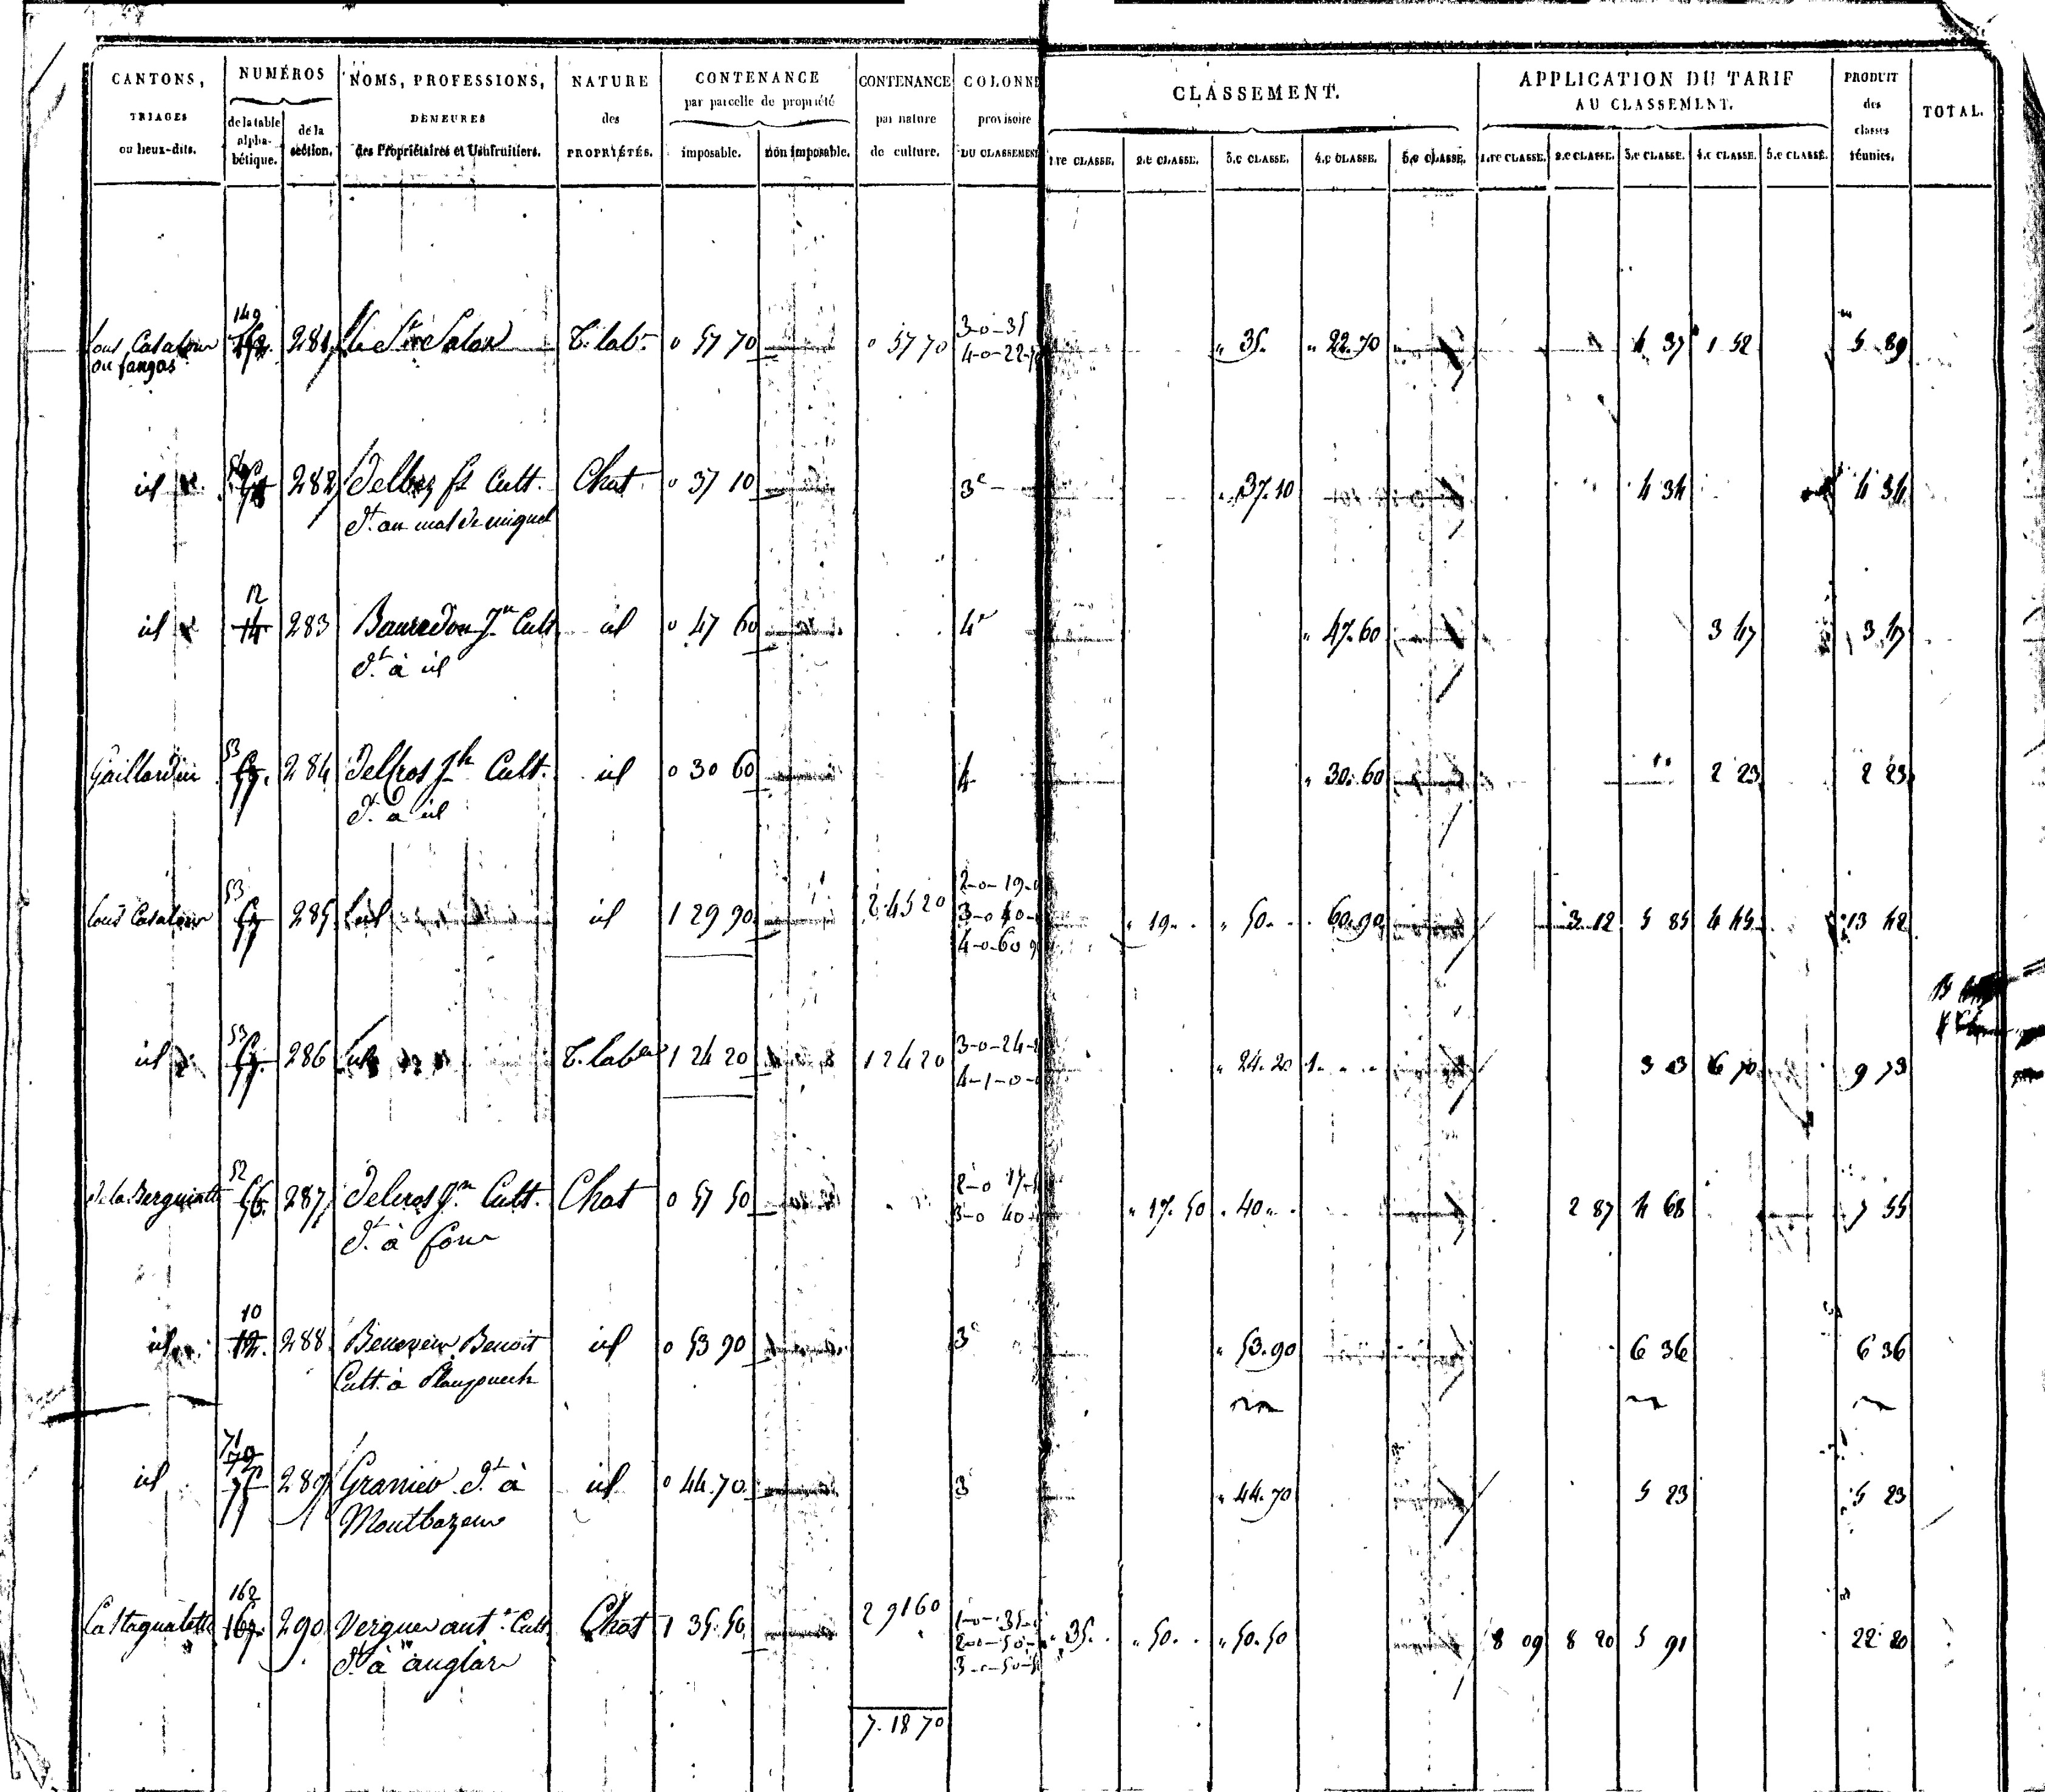 CANTONS, TRIAGES ou lieux-dits. | NUMÉROS de la table alphabétique. | de la section. | NOMS, PROFESSIONS, DEMEURES des Propriétaires et Usufruitiers. | NATURE des PROPRIÉTÉS. | CONTENANCE par parcelle de propriété imposable. | non imposable. | CONTENANCE par nature de culture. | COLONNE provisoire DU CLASSEMENT | CLASSEMENT. 1.re CLASSE. | 2.e CLASSE. | 3.e CLASSE. | 4.e CLASSE. | 5.e CLASSE. | APPLICATION DU TARIF AU CLASSEMENT. 1.re CLASSE. | 2.e CLASSE. | 3.e CLASSE. | 4.e CLASSE. | 5.e CLASSE. | PRODUIT des classes réunies. | TOTAL.
149
281 Le Sr Salox T. labe 0 57 70 0 57 70 3-0-35 " 35. " 22.70 4 37 1 52 5 89
ou fangas 4-0-22-70
id 282 Delbez fs Cult. Chat 0 37 10 3e " 37.10 4 34 4 34
dt au mas de miquel
12
id 14 283 Bauredon Jn Cult id 0 47 60 4e " 47.60 3 47 3 47
dt à id
53
Gaillardin 57. 284 Delcros Jh Cult. id 0 30 60 4 " 30.60 2 23 2 23
dt à id
53 2-0-19-0
Lous Casalous 57 285 Lui id 1 29 90 2 45 20 3-0 50- " 19. " 50. 60.90 3 12 5 85 4 45 13 42
4-0-60 9
53
id 57. 286 Lui T. labe 1 24 20 1 24 20 3-0-24-2 " 24.20 1. 3 03 6 70 9 73
4-1-0-0
52
de la Berguiette 56. 287 Delcros Jn Cult. Chat 0 57 50 2-0 17-5 " 17.50 " 40. 2 87 4 68 7 55
dt à Cour 3-0 40
10
id 12. 288 Benoit id 0 53 90 3e " 53.90 6 36 6 36
Cult. à Plaupuech
71
72
id 75 289 Granier dt à id 0 44.70 3 " 44.70 5 23 5 23
Montbazens
162
Castagnalette 167. 290 Vergne ant. Cult. Chat 1 35.50 2 91 60 1-0-35- " 35. " 50. " 50.50 8 09 8 20 5 91 22 20
dt à anglar 2-0-50-
3-0-50-5
7.18 70